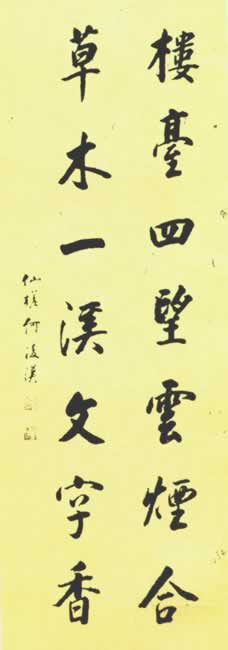 樓臺四望雲煙合
草木一溪文字香
仙槎何凌漢